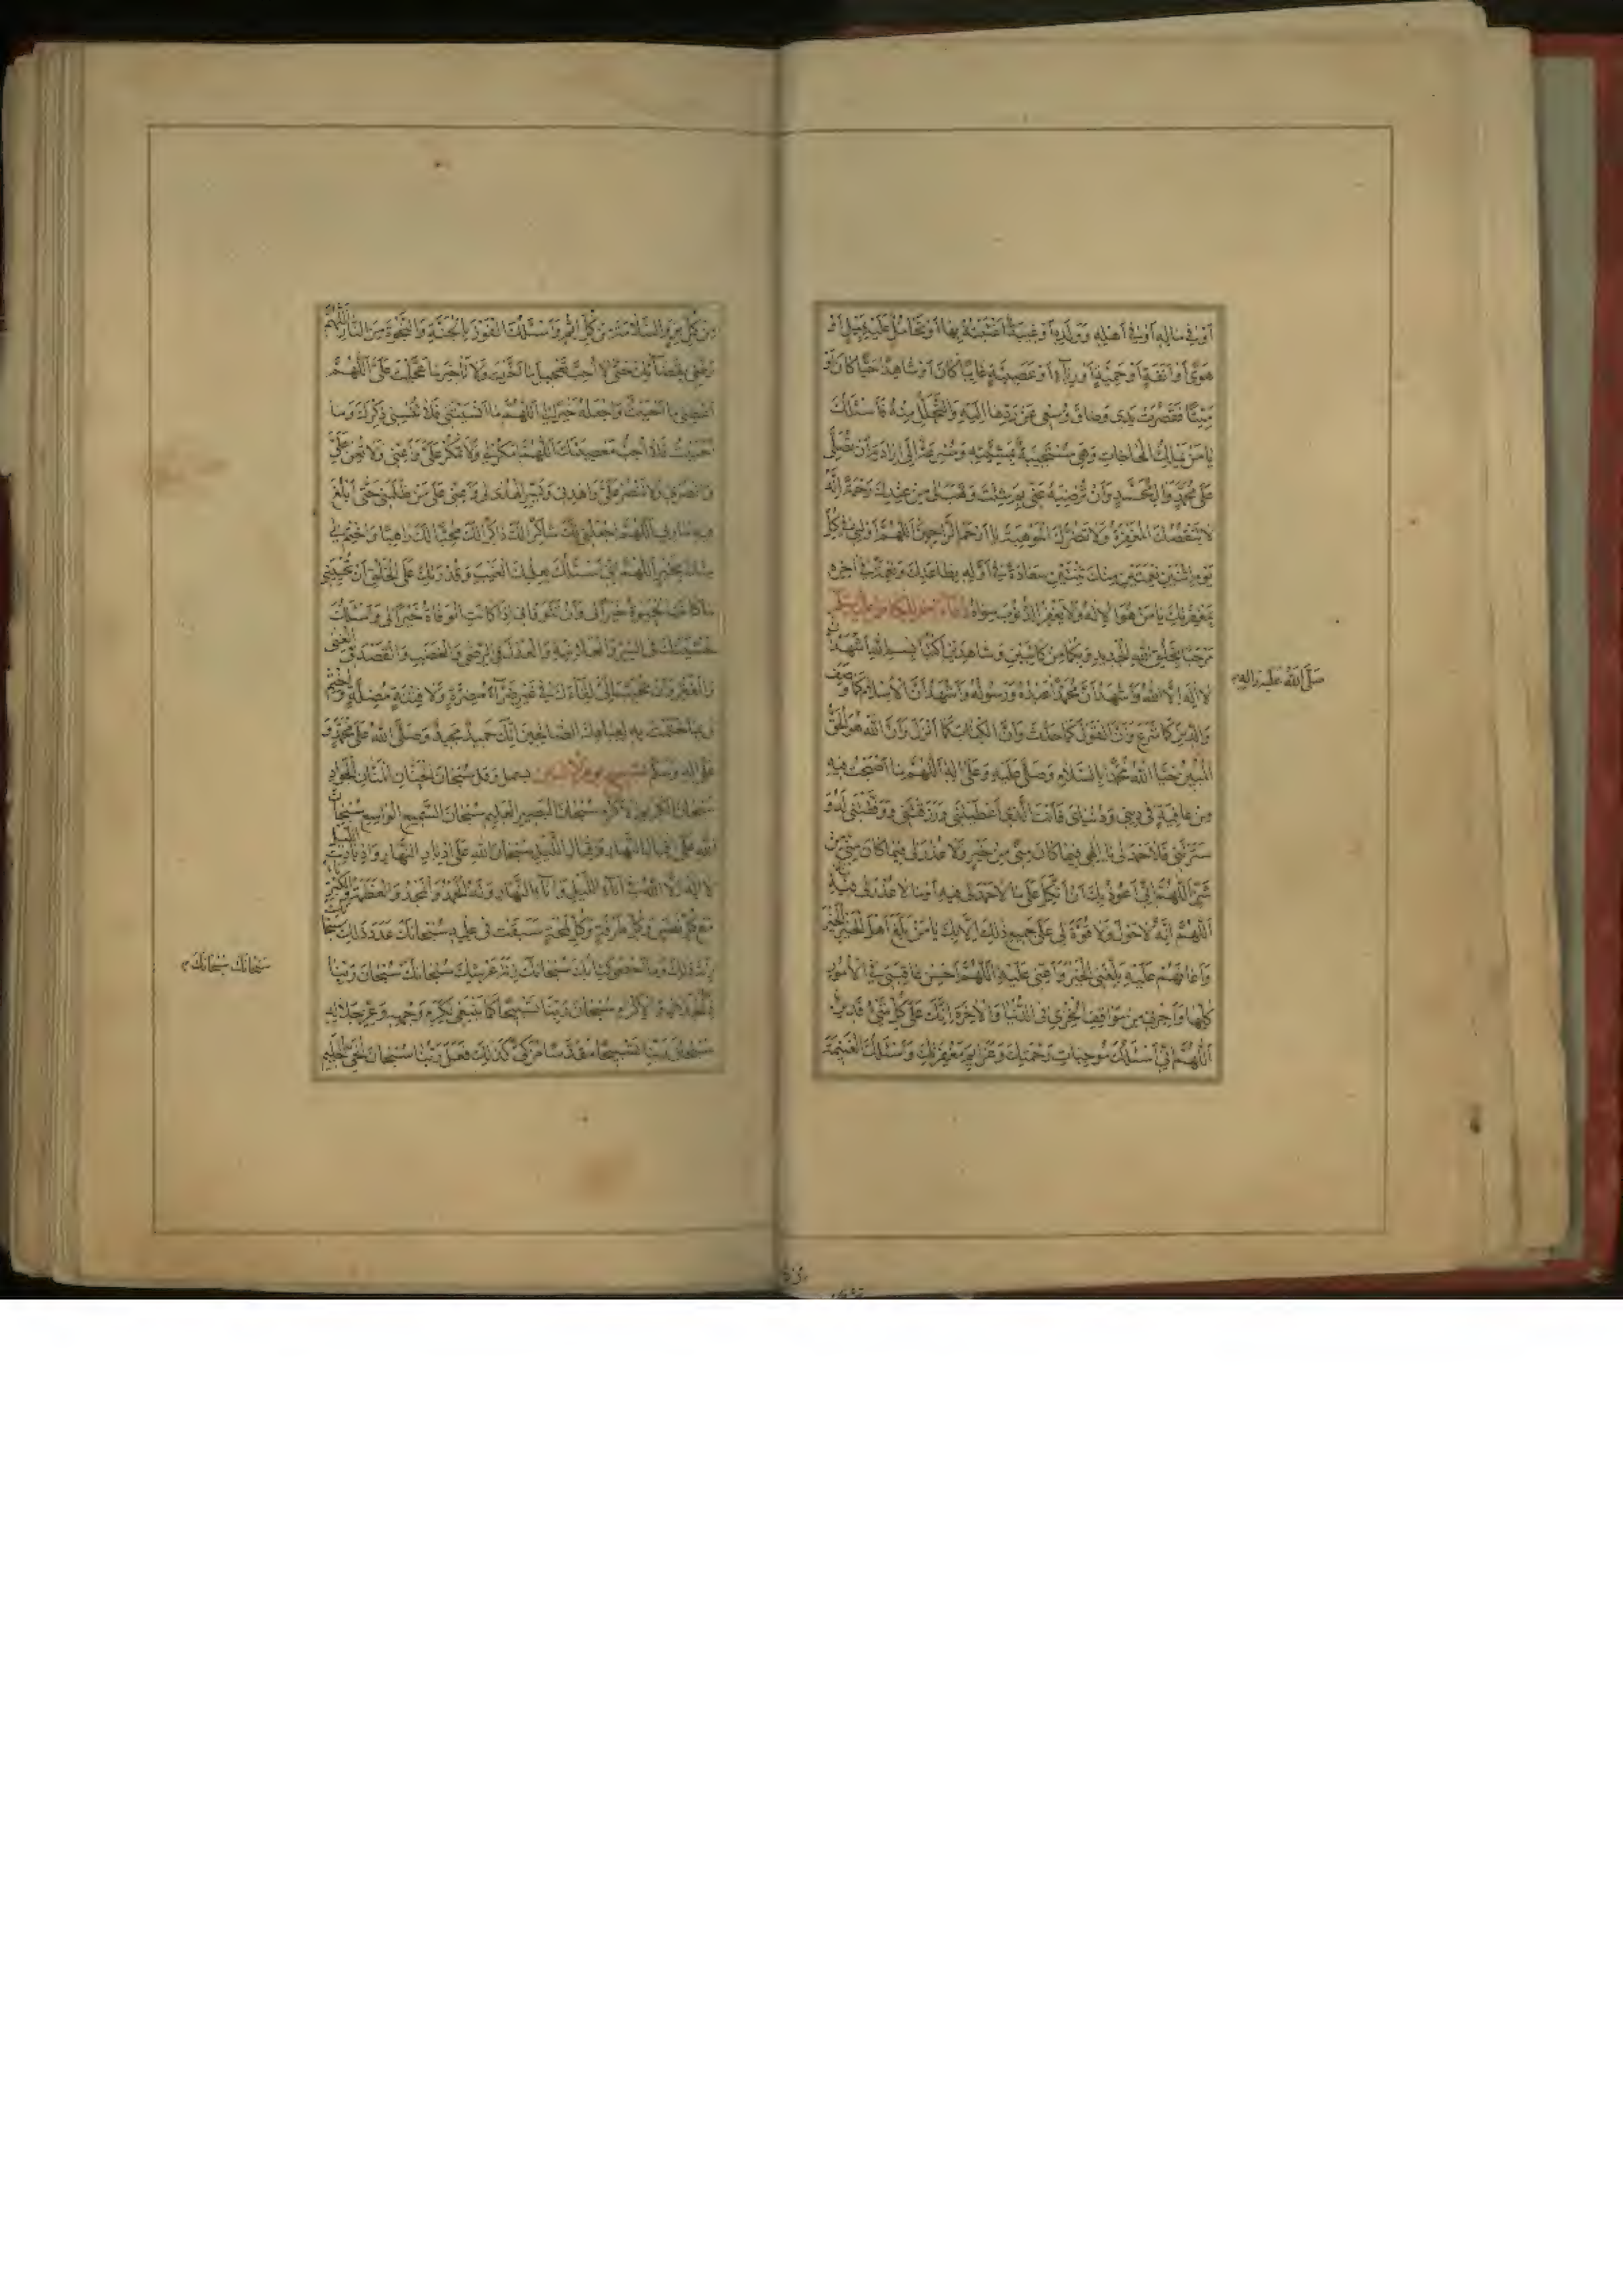 أَوْ فِي مَالِهِ أَوْ فِي أَهْلِهِ وَوَلَدِهِ أَوْ غِيبَةٌ اغْتَبْتُهُ بِهَا أَوْ تَحَامُلٌ عَلَيْهِ بِمَيْلٍ أَوْ
هَوًى أَوْ أَنَفَةٍ أَوْ حَمِيَّةٍ أَوْ رِيَآءٍ أَوْ عَصَبِيَّةٍ غَائِبًا كَانَ أَوْ شَاهِدًا حَيًّا كَانَ أَوْ
مَيِّتًا فَقَصُرَتْ يَدِي وَضَاقَ وُسْعِي عَنْ رَدِّهَا إِلَيْهِ وَالتَّحَلُّلِ مِنْهُ فَأَسْئَلُكَ
يَا مَنْ يَمْلِكُ الْحَاجَاتِ وَهِيَ مُسْتَجِيبَةٌ بِمَشِيَّتِهِ وَمُسْرِعَةٌ إِلَى إِرَادَتِهِ أَنْ تُصَلِّيَ
عَلَى مُحَمَّدٍ وَآلِ مُحَمَّدٍ وَأَنْ تُرْضِيَهُ عَنِّي بِمَ شِئْتَ وَتَهَبَ لِي مِنْ عِنْدِكَ رَحْمَةً إِنَّهُ
لَا تَنْقُصُكَ الْمَغْفِرَةُ وَلَا تَضُرُّكَ الْمَوْهِبَةُ يَا أَرْحَمَ الرَّاحِمِينَ اللَّهُمَّ أَوْلِنِي فِي كُلِّ
يَوْمِ اثْنَيْنِ نِعْمَتَيْنِ مِنْكَ ثِنْتَيْنِ سَعَادَةً فِي أَوَّلِهِ بِطَاعَتِكَ وَنِعْمَةً فِي آخِرِهِ
بِمَغْفِرَتِكَ يَا مَنْ هُوَ الْإِلَهُ وَلَا يَغْفِرُ الذُّنُوبَ سِوَاهُ دعاء آخر للكاظم عليه السلام
مَرْحَبًا بِخَلْقِ اللهِ الْجَدِيدِ وَبِكُمَا مِنْ كَاتِبَيْنِ وَشَاهِدَيْنِ اكْتُبَا بِسْمِ اللهِ أَشْهَدُ أَنْ
لَا إِلَهَ إِلَّا اللهُ وَأَشْهَدُ أَنَّ مُحَمَّدًا عَبْدُهُ وَرَسُولُهُ وَأَشْهَدُ أَنَّ الْإِسْلَامَ كَمَا وَصَفَ
صَلَّى اللهُ عَلَيْهِ وَآلِهِ
وَالدِّينَ كَمَا شَرَعَ وَأَنَّ الْقَوْلَ كَمَا حَدَّثَ وَأَنَّ الْكِتَابَ كَمَا أَنْزَلَ وَأَنَّ اللهَ هُوَ الْحَقُّ
الْمُبِينُ حَيَّا اللهُ مُحَمَّدًا بِالسَّلَامِ وَصَلَّى عَلَيْهِ وَعَلَى آلِهِ اللَّهُمَّ مَا أَصْبَحْتُ فِيهِ
مِنْ عَافِيَةٍ فِي دِينِي وَدُنْيَايَ فَأَنْتَ الَّذِي أَعْطَيْتَنِي وَرَزَقْتَنِي وَوَفَّقْتَنِي لَهُ وَ
سَتَرْتَنِي فَلَا حَمْدَ لِي يَا إِلَهِي فِيمَا كَانَ مِنِّي مِنْ خَيْرٍ وَلَا عُذْرَ لِي فِيمَا كَانَ مِنِّي مِنْ
شَرٍّ اللَّهُمَّ إِنِّي أَعُوذُ بِكَ أَنْ أَتَّكِلَ عَلَى مَا لَا حَمْدَ لِي فِيهِ أَوْ مَا لَا عُذْرَ لِي فِيهِ
اللَّهُمَّ إِنَّهُ لَا حَوْلَ وَلَا قُوَّةَ لِي عَلَى جَمِيعِ ذَلِكَ إِلَّا بِكَ يَا مَنْ بَلَّغَ أَهْلَ الْخَيْرِ الْخَيْرَ
وَأَعَانَهُمْ عَلَيْهِ بَلِّغْنِي الْخَيْرَ وَأَعِنِّي عَلَيْهِ اللَّهُمَّ أَحْسِنْ عَاقِبَتِي فِي الْأُمُورِ
كُلِّهَا وَأَجِرْنِي مِنْ مَوَاقِفِ الْخِزْيِ فِي الدُّنْيَا وَالْآخِرَةِ إِنَّكَ عَلَى كُلِّ شَيْءٍ قَدِيرٌ
اللَّهُمَّ إِنِّي أَسْئَلُكَ مُوجِبَاتِ رَحْمَتِكَ وَعَزَائِمَ مَغْفِرَتِكَ وَأَسْئَلُكَ الْغَنِيمَةَ
مِنْ كُلِّ بِرٍّ وَالسَّلَامَةَ مِنْ كُلِّ إِثْمٍ وَأَسْئَلُكَ الْفَوْزَ بِالْجَنَّةِ وَالنَّجْوةَ مِنَ النَّارِ اللَّهُمَّ
رَضِّنِي بِقَضَآئِكَ حَتَّى لَا أُحِبَّ تَعْجِيلَ مَا أَخَّرْتَ وَلَا تَأْخِيرَ مَا عَجَّلْتَ عَلَيَّ اللَّهُمَّ
أَعْطِنِي مَا أَحْبَبْتُ وَاجْعَلْهُ خَيْرًا لِي اللَّهُمَّ مَا أَنْسَيْتَنِي فَلَا تُنْسِنِي ذِكْرَكَ وَمَا
أَحْبَبْتُ فَلَا أُحِبُّ مَعْصِيَتَكَ اللَّهُمَّ امْكُرْ لِي وَلَا تَمْكُرْ عَلَيَّ وَأَعِنِّي وَلَا تُعِنْ عَلَيَّ
وَانْصُرْنِي وَلَا تَنْصُرْ عَلَيَّ وَاهْدِنِي وَيَسِّرِ الْهُدَى لِي وَأَعِنِّي عَلَى مَنْ ظَلَمَنِي حَتَّى أَبْلُغَ
فِيهِ مَآرِبِي اللَّهُمَّ اجْعَلْنِي لَكَ شَاكِرًا لَكَ ذَاكِرًا لَكَ مُحِبًّا لَكَ رَاهِبًا وَاخْتِمْ لِي
مِنْكَ بِخَيْرٍ اللَّهُمَّ إِنِّي أَسْئَلُكَ بِعِلْمِكَ الْغَيْبَ وَقُدْرَتِكَ عَلَى الْخَلْقِ أَنْ تُحْيِيَنِي
مَا كَانَتِ الْحَيٰوةُ خَيْرًا لِي وَأَنْ تَتَوَفَّانِي إِذَا كَانَتِ الْوَفَاةُ خَيْرًا لِي وَأَسْئَلُكَ
خَشْيَتَكَ فِي السِّرِّ وَالْعَلَانِيَةِ وَالْعَدْلَ فِي الرِّضَى وَالْغَضَبِ وَالْقَصْدَ فِي الْغِنَى
وَالْفَقْرِ وَأَنْ تُحَبِّبَ إِلَيَّ لِقَاءَكَ فِي غَيْرِ ضَرَّآءَ مُضِرَّةٍ وَلَا فِتْنَةٍ مُضِلَّةٍ وَاخْتِمْ
لِي بِمَا خَتَمْتَ بِهِ لِعِبَادِكَ الصَّالِحِينَ إِنَّكَ حَمِيدٌ مَجِيدٌ وَصَلَّى اللهُ عَلَى مُحَمَّدٍ وَ
عَلَى آلِهِ وَسَلَّمَ تسبيح يوم الاثنين سُبْحَانَ الْحَنَّانِ الْمَنَّانِ الْجَوَادِ
سُبْحَانَ الْكَرِيمِ الْأَكْرَمِ سُبْحَانَ الْبَصِيرِ الْعَلِيمِ سُبْحَانَ السَّمِيعِ الْوَاسِعِ سُبْحَانَ
اللهِ عَلَى إِقْبَالِ النَّهَارِ وَإِقْبَالِ اللَّيْلِ سُبْحَانَ اللهِ عَلَى إِدْبَارِ النَّهَارِ وَإِدْبَارِ اللَّيْلِ
لَا إِلَهَ إِلَّا اللهُ فِي آنَآءِ اللَّيْلِ وَآنَآءِ النَّهَارِ وَلَهُ الْحَمْدُ وَالْمَجْدُ وَالْعَظَمَةُ وَالْكِبْرِيَآءُ
مَعَ كُلِّ نَفَسٍ وَكُلِّ طَرْفَةٍ وَكُلِّ لَمْحَةٍ سَبَقَتْ فِي عِلْمِهِ سُبْحَانَكَ عَدَدَ ذَلِكَ سُبْحَانَكَ
زِنَةَ ذَلِكَ وَمَا أَحْصَى كِتَابُكَ سُبْحَانَكَ زِنَةَ عَرْشِكَ سُبْحَانَكَ سُبْحَانَ رَبِّنَا
سُبْحَانَكَ سُبْحَانَكَ
ذِي الْجَلَالِ وَالْإِكْرَامِ سُبْحَانَ رَبِّنَا تَسْبِيحًا كَمَا يَنْبَغِي لِكَرَمِ وَجْهِهِ وَعِزِّ جَلَالِهِ
سُبْحَانَ رَبِّنَا تَسْبِيحًا مُقَدَّسًا مُزَكًّى كَذَلِكَ فَعَلَ رَبُّنَا سُبْحَانَ الْحَيِّ الْحَلِيمِ